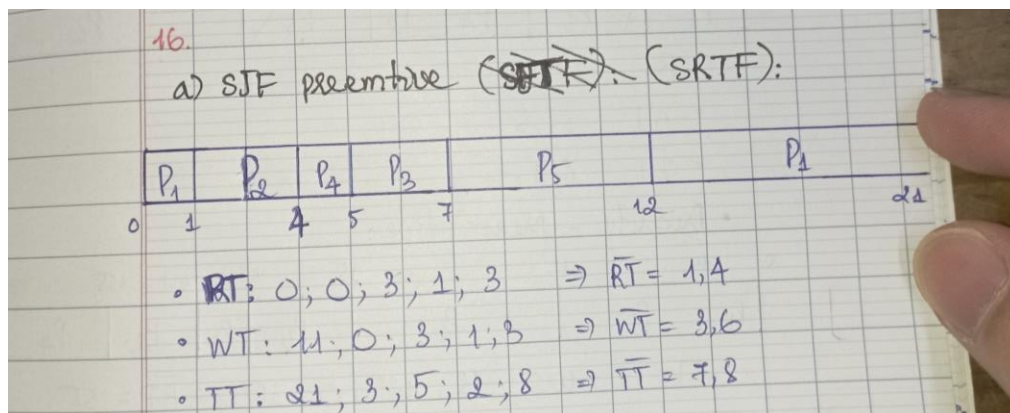 16.
a) SJF preemtive (SRTF):
P1 P2 P4 P3 P5 P1
0 1 4 5 7 12 21
• RT: 0; 0; 3; 1; 3 ⇒ R̅T̅ = 1,4
• WT: 11; 0; 3; 1; 3 ⇒ W̅T̅ = 3,6
• TT: 21; 3; 5; 2; 8 ⇒ T̅T̅ = 7,8